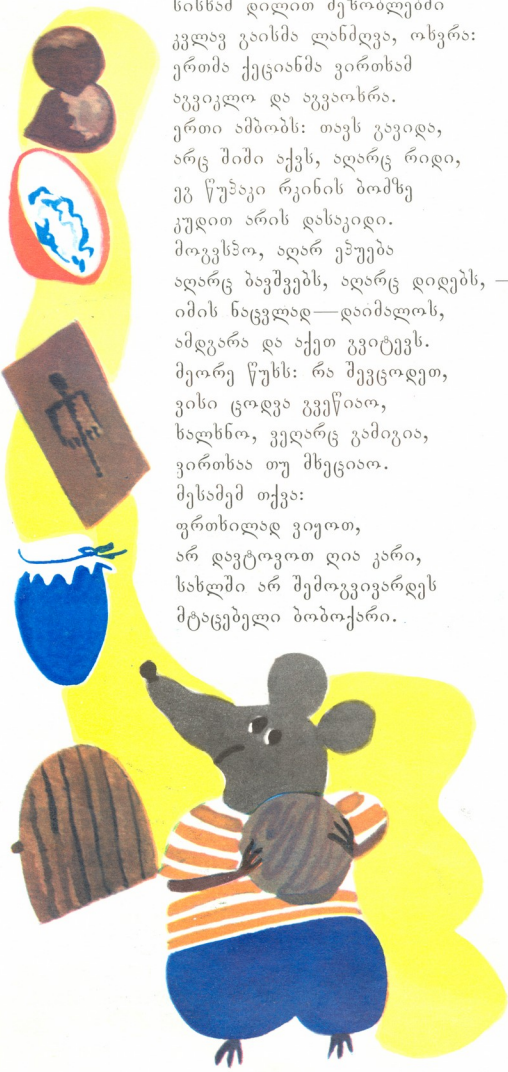 სისხამ დილით მეზობლებში
კვლავ გაისმა ლანძღვა, ოხვრა:
ერთმა ქეციანმა ვირთხამ
აგვიკლო და აგვაოხრა.
ერთი ამბობს: თავს გავიდა,
არც შიში აქვს, აღარც რიდი,
ეგ წუპაკი რკინის ბომზე
კუდით არის დასაკიდი.
მოგვსპო, აღარ ეპუება
აღარც ბავშვებს, აღარც დიდებს, —
იმის ნაცვლად—დაიმალოს,
ამდგარა და აქეთ გვიტევს.
მეორე წუხს: რა შევცოდეთ,
ვისი ცოდვა გვეწიაო,
ხალხნო, ვეღარც გამიგია,
ვირთხაა თუ მხეციაო.
მესამემ თქვა:
ფრთხილად ვიყოთ,
არ დავტოვოთ ღია კარი,
სახლში არ შემოგვივარდეს
მტაცებელი ბობოქარი.